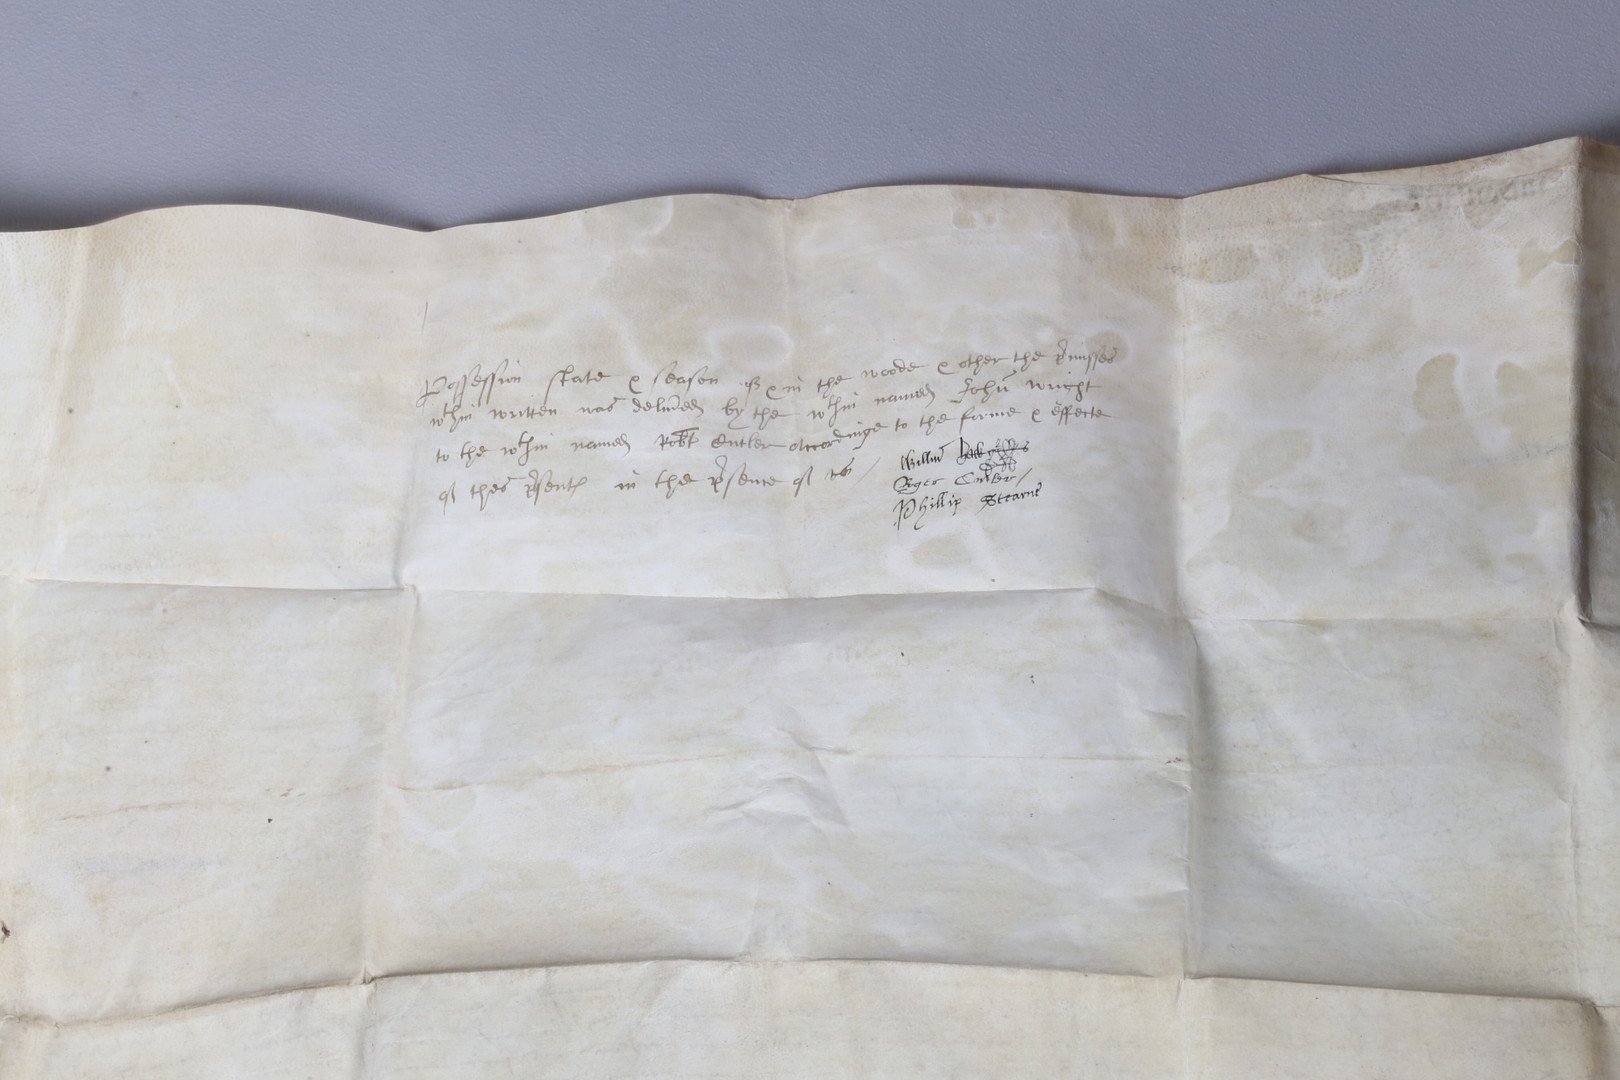 Possession state & season of & in the woode & other the p̃misses
wthin written was deliũed by the wthin named John wright
to the wthin named Robt Cutler accordinge to the forme & effecte
of thes p̃sents in the p̃sence of us /
Willm̃
Roger Cutler /
Phillip Stearne